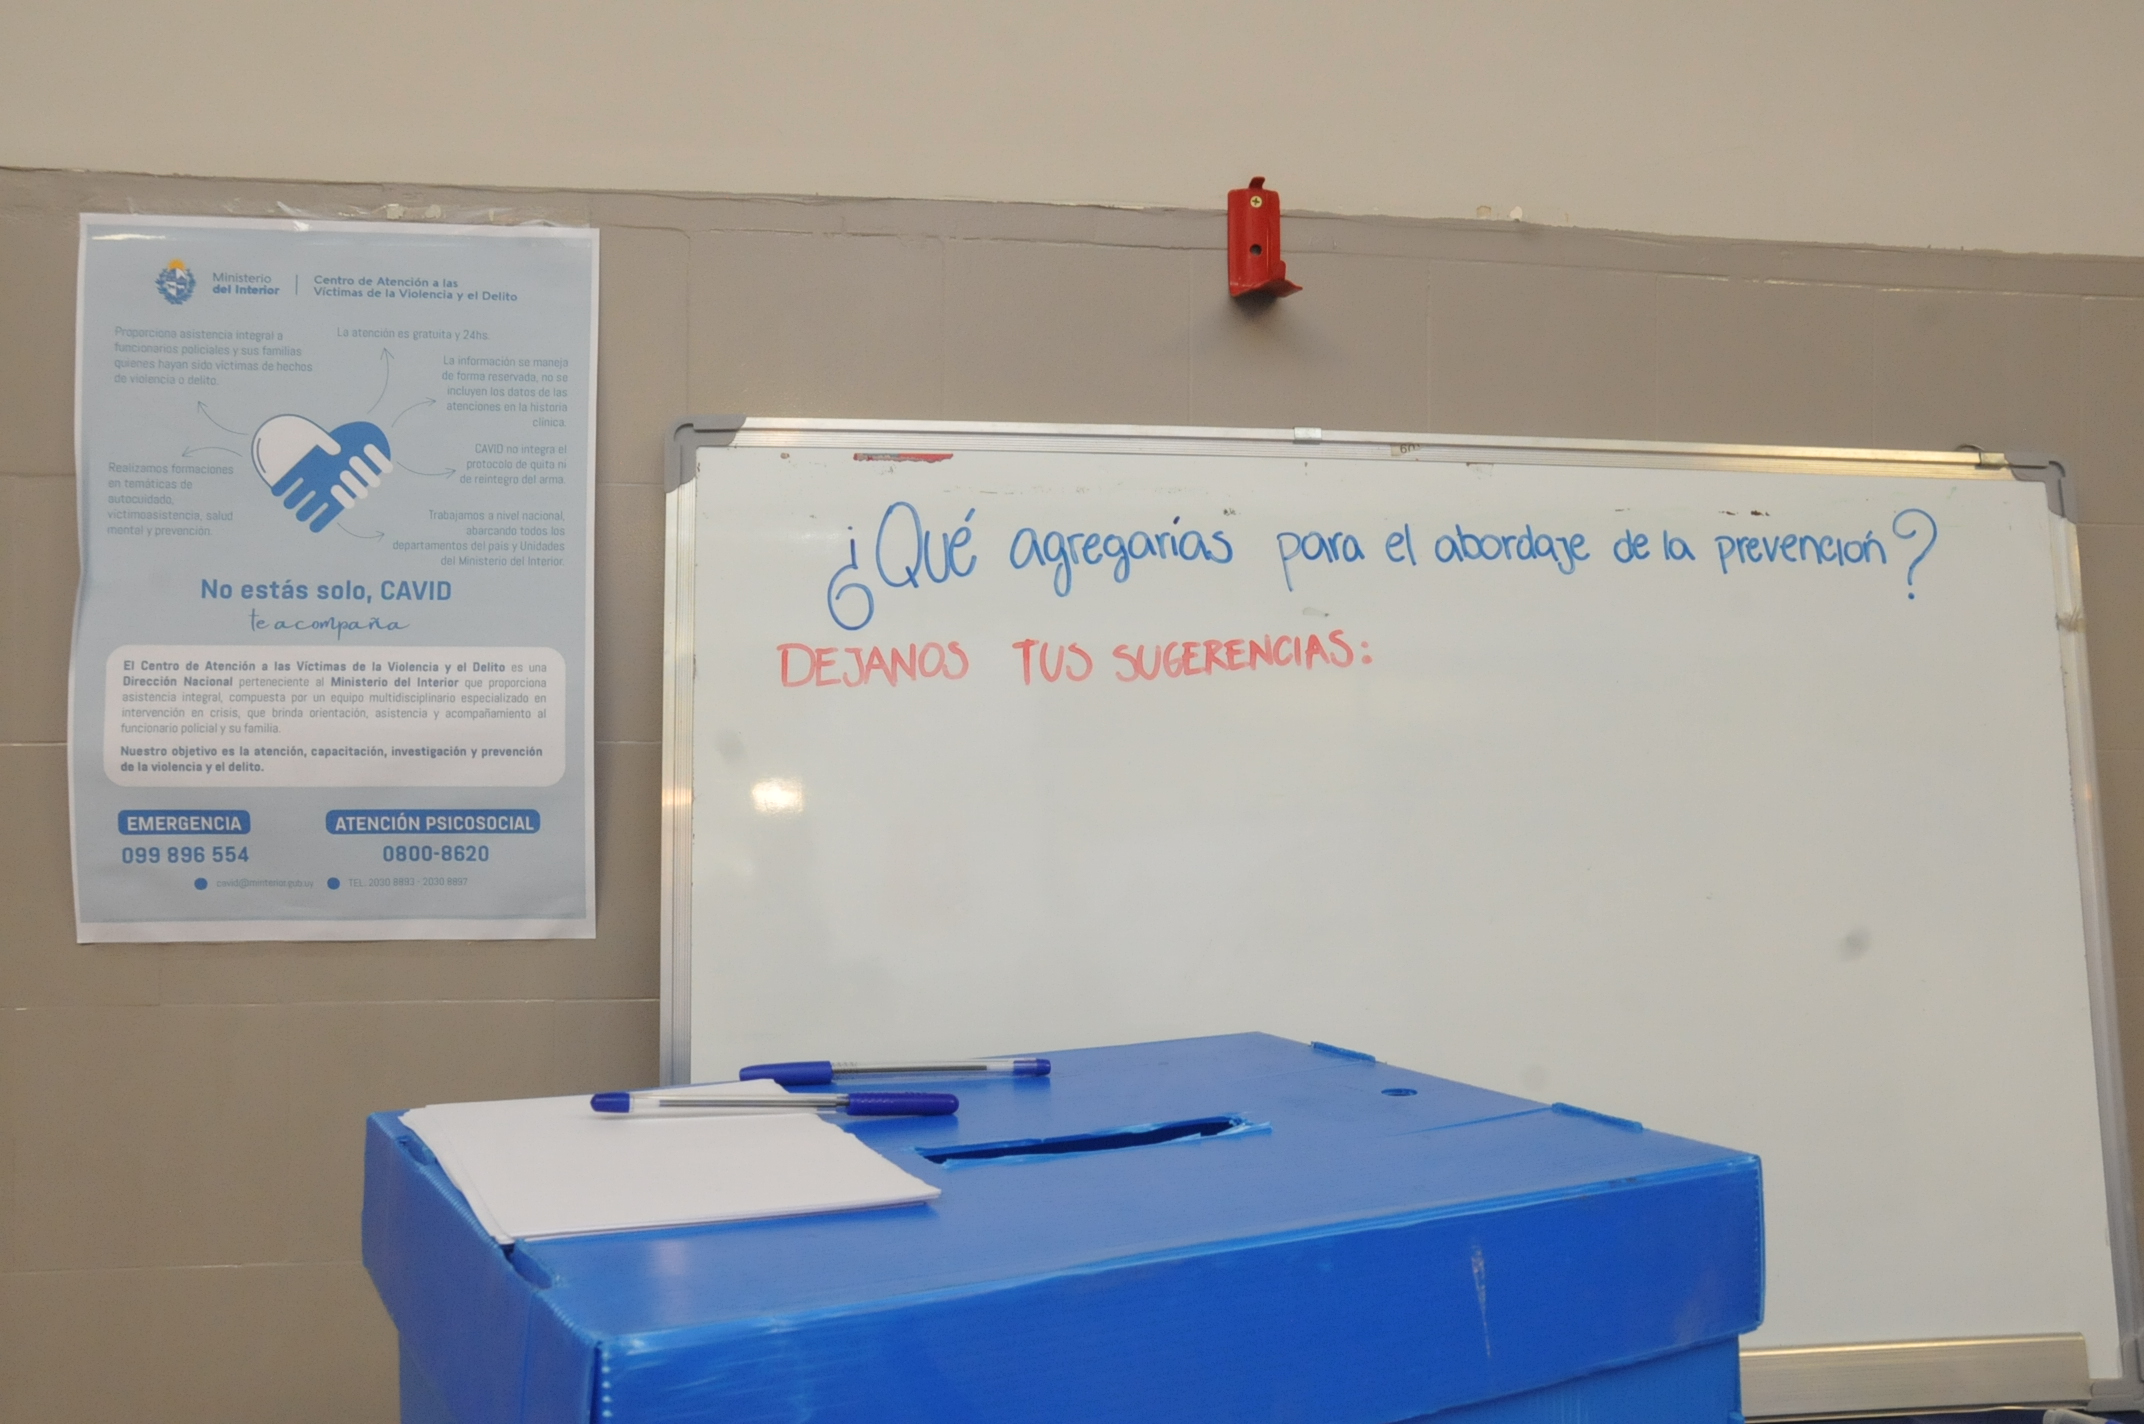 Ministerio
del Interior
Centro de Atención a las
Víctimas de la Violencia y el Delito
Proporciona asistencia integral a
funcionarios policiales y sus familias
quienes hayan sido víctimas de hechos
de violencia o delito.
La atención es gratuita y 24hs.
La información se maneja
de forma reservada, no se
incluyen los datos de las
atenciones en la historia
clínica.
CAVID no integra el
protocolo de quita ni
de reintegro del arma.
Realizamos formaciones
en temáticas de
autocuidado,
victimoasistencia, salud
mental y prevención.
Trabajamos a nivel nacional,
abarcando todos los
departamentos del país y Unidades
del Ministerio del Interior.
No estás solo, CAVID
te acompaña
El Centro de Atención a las Víctimas de la Violencia y el Delito es una
Dirección Nacional perteneciente al Ministerio del Interior que proporciona
asistencia integral, compuesta por un equipo multidisciplinario especializado en
intervención en crisis, que brinda orientación, asistencia y acompañamiento al
funcionario policial y su familia.
Nuestro objetivo es la atención, capacitación, investigación y prevención
de la violencia y el delito.
EMERGENCIA
099 896 554
ATENCIÓN PSICOSOCIAL
0800-8620
cavid@minterior.gub.uy
TEL. 2030 8893 - 2030 8897
¿Qué agregarías para el abordaje de la prevención?
DEJANOS TUS SUGERENCIAS: